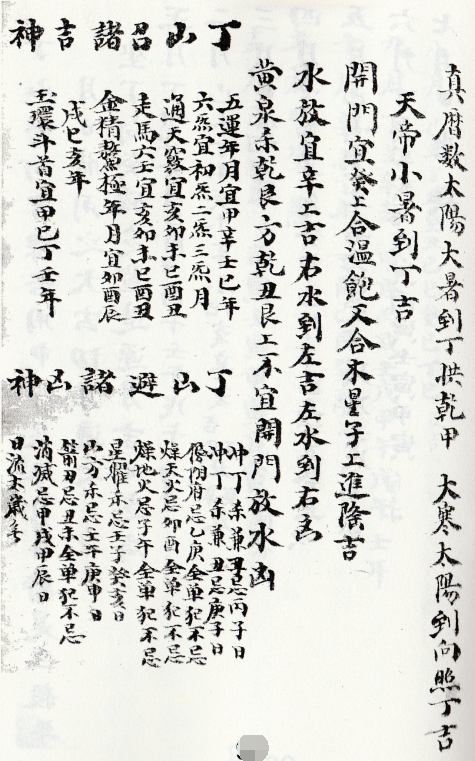 真曆数太陽大暑到丁拱乾甲　大寒太陽到向照丁吉
天帝小暑到丁吉
開門宜癸上合溫飽又合木星子上進隆吉
水放宜辛上吉右水到左吉左水到右凶
黃泉忌乾艮方乾丑艮上不宜開門放水凶
丁山召諸吉神
五運年月宜甲辛壬巳年
六炁宜初炁二炁三炁月
通天竅宜亥卯未巳酉丑
走馬六壬宜亥卯未巳酉丑
金精鰲極年月宜卯酉辰
戌巳亥年
玉環斗首宜甲巳丁壬年
丁山避諸凶神
冲丁未兼丑忌丙子日
冲丁未兼丑忌庚子日
陰府忌乙庚全單犯不忌
燥天火忌卯酉全單犯不忌
燥地火忌子午全單犯不忌
星曜未忌壬子癸亥日
山方未忌壬午庚申日
箭刃忌丑未全單犯不忌
消滅忌甲戌甲辰日
日流太歲